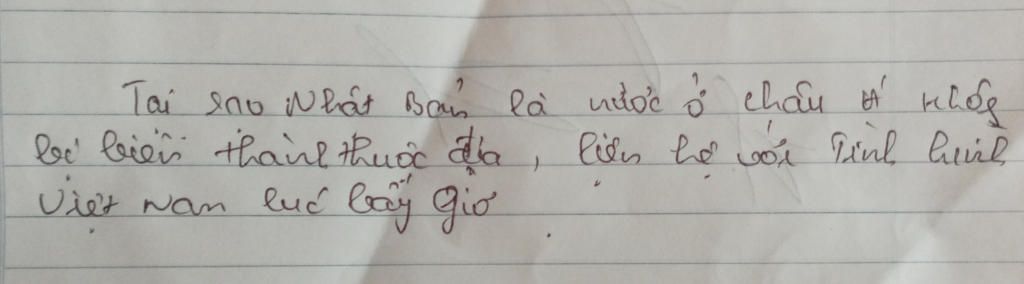 Tại sao Nhật Bản là nước ở châu Á không
bị biến thành thuộc địa, liên hệ với tình hình
Việt Nam lúc bấy giờ.